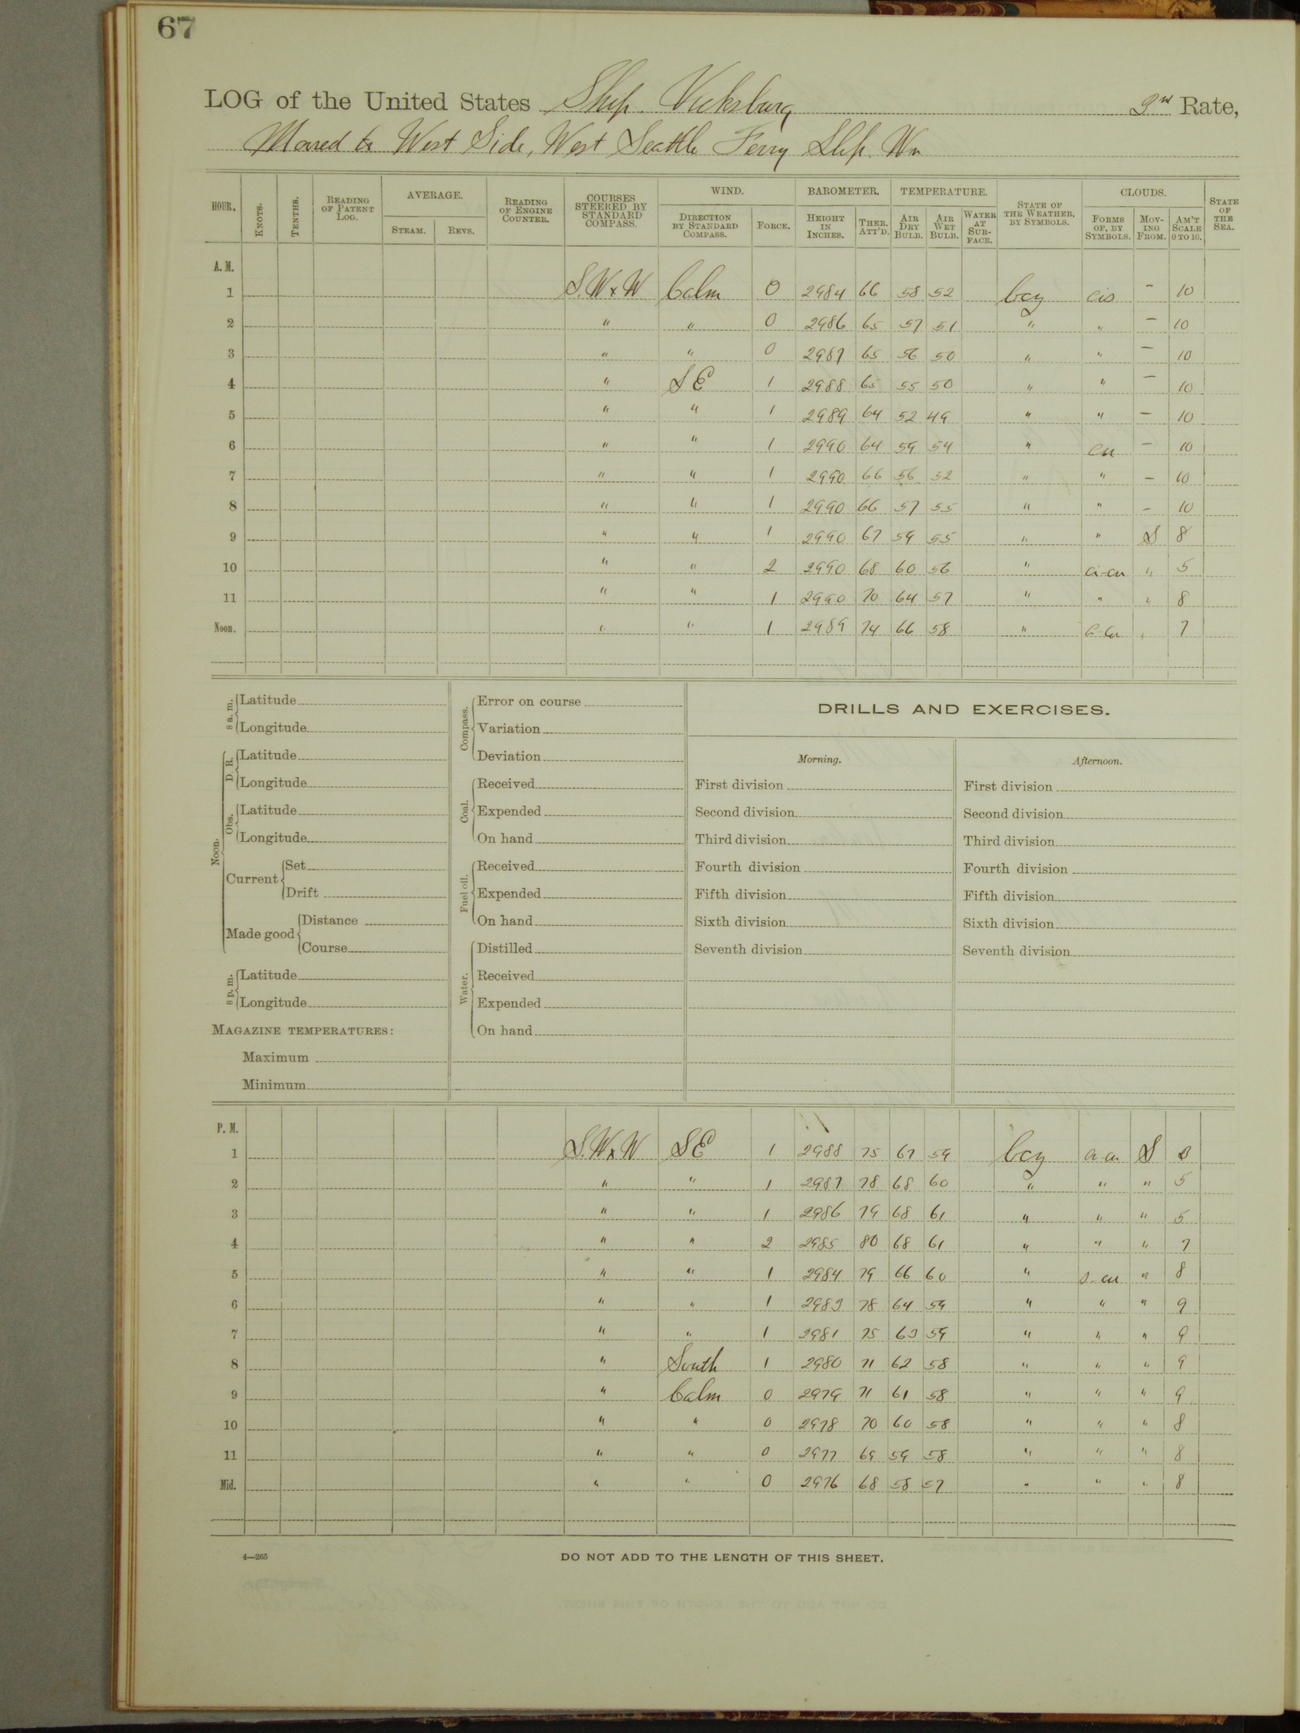 67
LOG of the United States Ship. Vicksburg 2nd Rate,
Moored to West Side, West Seattle Ferry Slip. Wn
HOUR. KNOTS. TENTHS. READING OF PATENT LOG. AVERAGE. STEAM. REVS. READING OF ENGINE COUNTER. COURSES STEERED BY STANDARD COMPASS. WIND. DIRECTION BY STANDARD COMPASS. FORCE. BAROMETER. HEIGHT IN INCHES. THER. ATT'D. TEMPERATURE. AIR DRY BULB. AIR WET BULB. WATER AT SURFACE. STATE OF THE WEATHER, BY SYMBOLS. CLOUDS. FORMS OF, BY SYMBOLS. MOVING FROM. AM'T SCALE 0 TO 10. STATE OF THE SEA.
A. M.
1 S.W x W Calm 0 2984 66 58 52 bcg cis - 10
2 " " 0 2986 65 57 51 " " - 10
3 " " 0 2987 65 56 50 " " - 10
4 " SE 1 2988 65 55 50 " " - 10
5 " " 1 2989 64 52 49 " " - 10
6 " " 1 2990 64 59 54 " cu - 10
7 " " 1 2990 66 56 52 " " - 10
8 " " 1 2990 66 57 55 " " - 10
9 " " 1 2990 67 59 55 " " S 8
10 " " 2 2990 68 60 56 " a-cu " 5
11 " " 1 2990 70 64 57 " " " 8
Noon. " " 1 2989 74 66 58 " " 7
8 a. m. Latitude
Longitude
Noon. D. R. Latitude
Longitude
Obs. Latitude
Longitude
Current Set
Drift
Made good Distance
Course
8 p. m. Latitude
Longitude
MAGAZINE TEMPERATURES:
Maximum
Minimum
Compass. Error on course
Variation
Deviation
Coal. Received
Expended
On hand
Fuel oil. Received
Expended
On hand
Water. Distilled
Received
Expended
On hand
DRILLS AND EXERCISES.
Morning.
First division
Second division
Third division
Fourth division
Fifth division
Sixth division
Seventh division
Afternoon.
First division
Second division
Third division
Fourth division
Fifth division
Sixth division
Seventh division
P. M.
1 S.W x W SE 1 2988 75 67 59 bcg a-cu S
2 " " 1 2987 78 68 60 " " " 5
3 " " 1 2986 79 68 61 " " " 5
4 " " 2 2985 80 68 61 " " " 7
5 " " 1 2984 79 66 60 " s-cu " 8
6 " " 1 2983 78 64 59 " " " 9
7 " " 1 2981 75 63 59 " " " 9
8 " South 1 2980 71 62 58 " " " 9
9 " Calm 0 2979 71 61 58 " " " 9
10 " " 0 2978 70 60 58 " " " 8
11 " " 0 2977 69 59 58 " " " 8
Mid. " " 0 2976 68 58 57 " " " 8
4—265
DO NOT ADD TO THE LENGTH OF THIS SHEET.